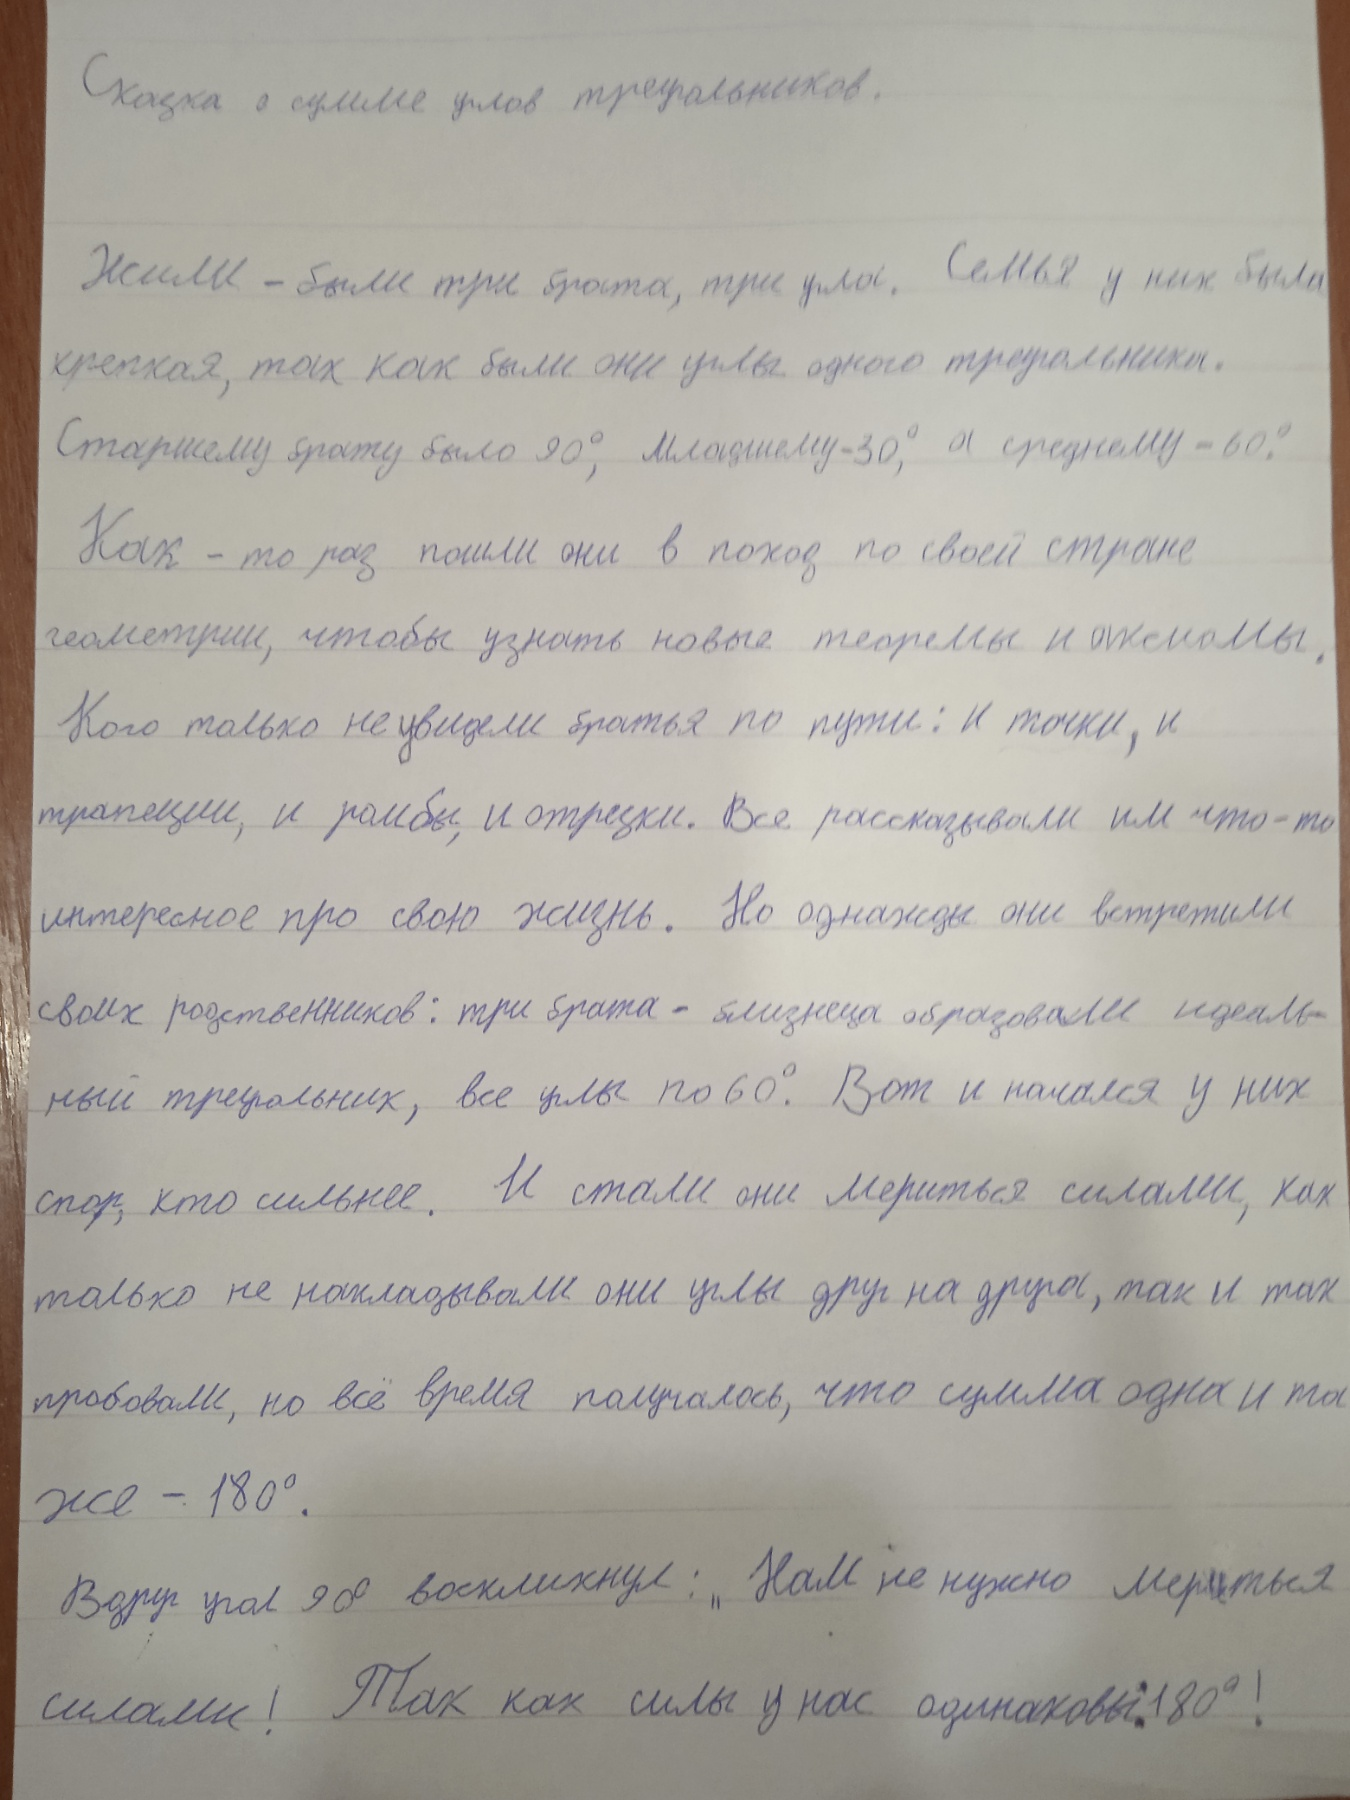 Сказка о сумме углов треугольников.
Жили - были три брата, три угла. Семья у них была
крепкая, так как были они углы одного треугольника.
Старшему брату было 90°, младшему-30°, а среднему - 60°.
Как - то раз пошли они в поход по своей стране
геометрии, чтобы узнать новые теоремы и аксиомы.
Кого только не увидели братья по пути: и точки, и
трапеции, и ромбы, и отрезки. Все рассказывали им что-то
интересное про свою жизнь. Но однажды они встретили
своих родственников: три брата - близнеца образовали идеаль-
ный треугольник, все углы по 60°. Вот и начался у них
спор, кто сильнее. И стали они мериться силами, как
только не накладывали они углы друг на друга, так и так
пробовали, но всё время получалось, что сумма одна и та
же - 180°.
Вдруг угол 90° воскликнул: „Нам не нужно мериться
силами! Так как силы у нас одинаковы: 180°!